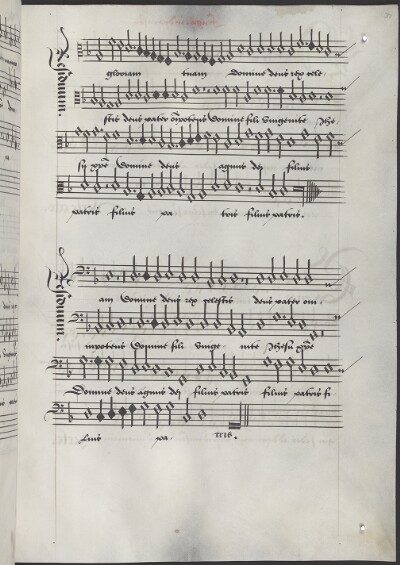 gloriam tuam Domine deus rex cele
stis deus pater o͞ipotens Domine fili vnigenite Jhe
su xp͞e Domine deus agnus dei filius
patris filius pa tris filius patris.
am Domine deus rex celestis deus pater om
nipotens Domine fili vnige nite Jhesu xp͞e
Domine deus agnus dei filius patris filius patris fi
lius pa tris.